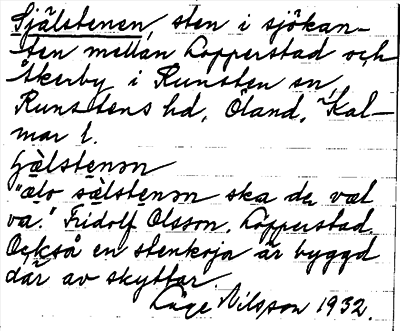 Själstenen, sten i sjökan-
ten mellan Lopperstad och
Åkerby i Runsten sn,
Runstens hd, Öland, Kal-
mar l.
sälstenən
"alo sälstenən ska de val
va." Fridolf Olsson, Lopperstad.
Också en stenkoja är byggd
där av skyttar.
Åge Nilsson 1932.